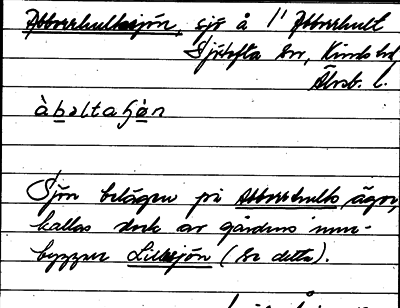 Abborrhultasjön, sjö å 1' Abborrhult
Sjötofta sn, Kinds hd,
Älvsb. l.
àbǝltaʃö̀n
Sjön belägen på Abborrhults ägor,
kallas dock av gårdens inne-
byggare Lillsjön (se detta).